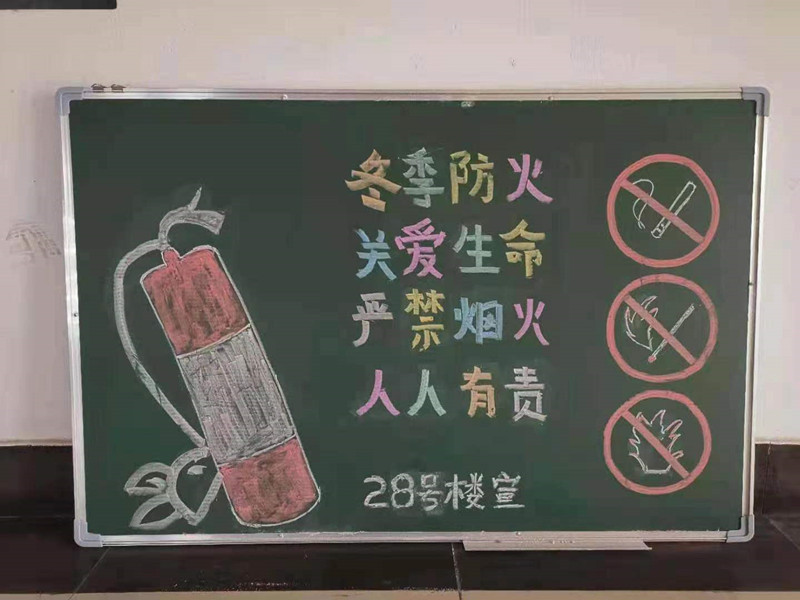 冬季防火
关爱生命
严禁烟火
人人有责
28号楼宣